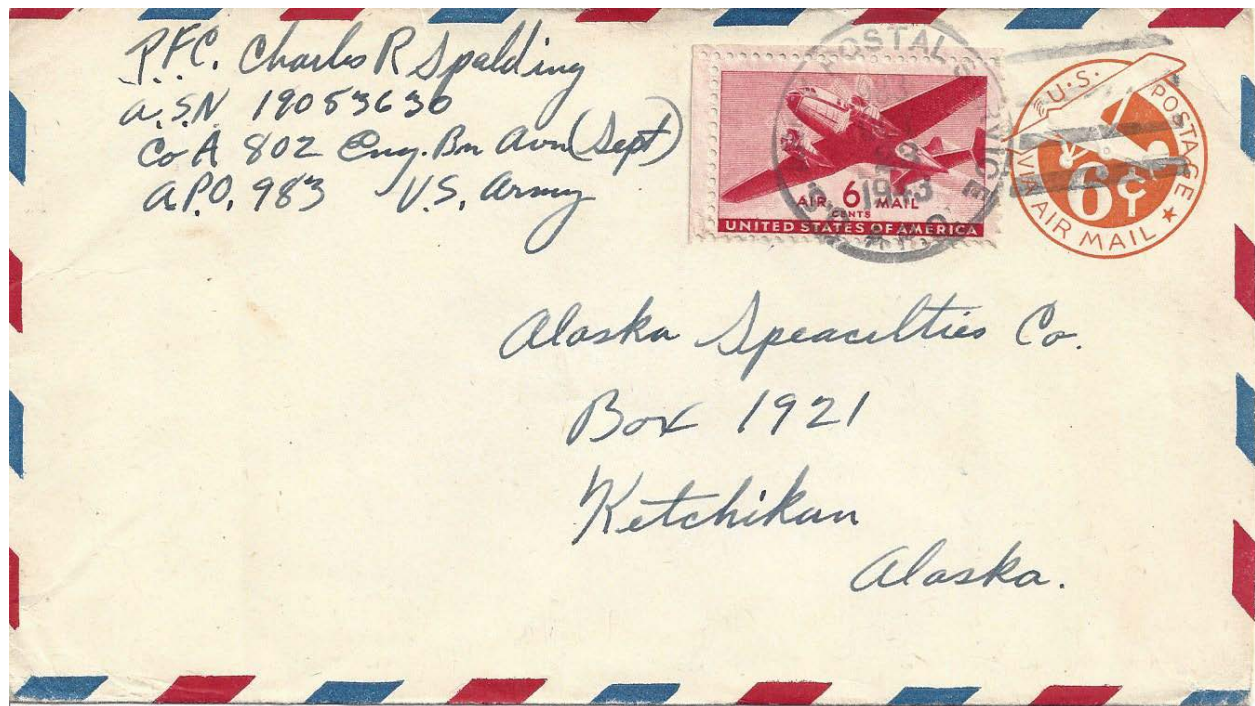 P.F.C. Charles R Spalding
A.S.N 19053630
Co A 802 Eng. Bn Avn (Sept)
A.P.O. 983 U.S. Army
POSTAL
1943
AIR 6 MAIL
CENTS
UNITED STATES OF AMERICA
U.S. POSTAGE
6¢
VIA AIR MAIL
Alaska Speacilties Co.
Box 1921
Ketchikan
Alaska.